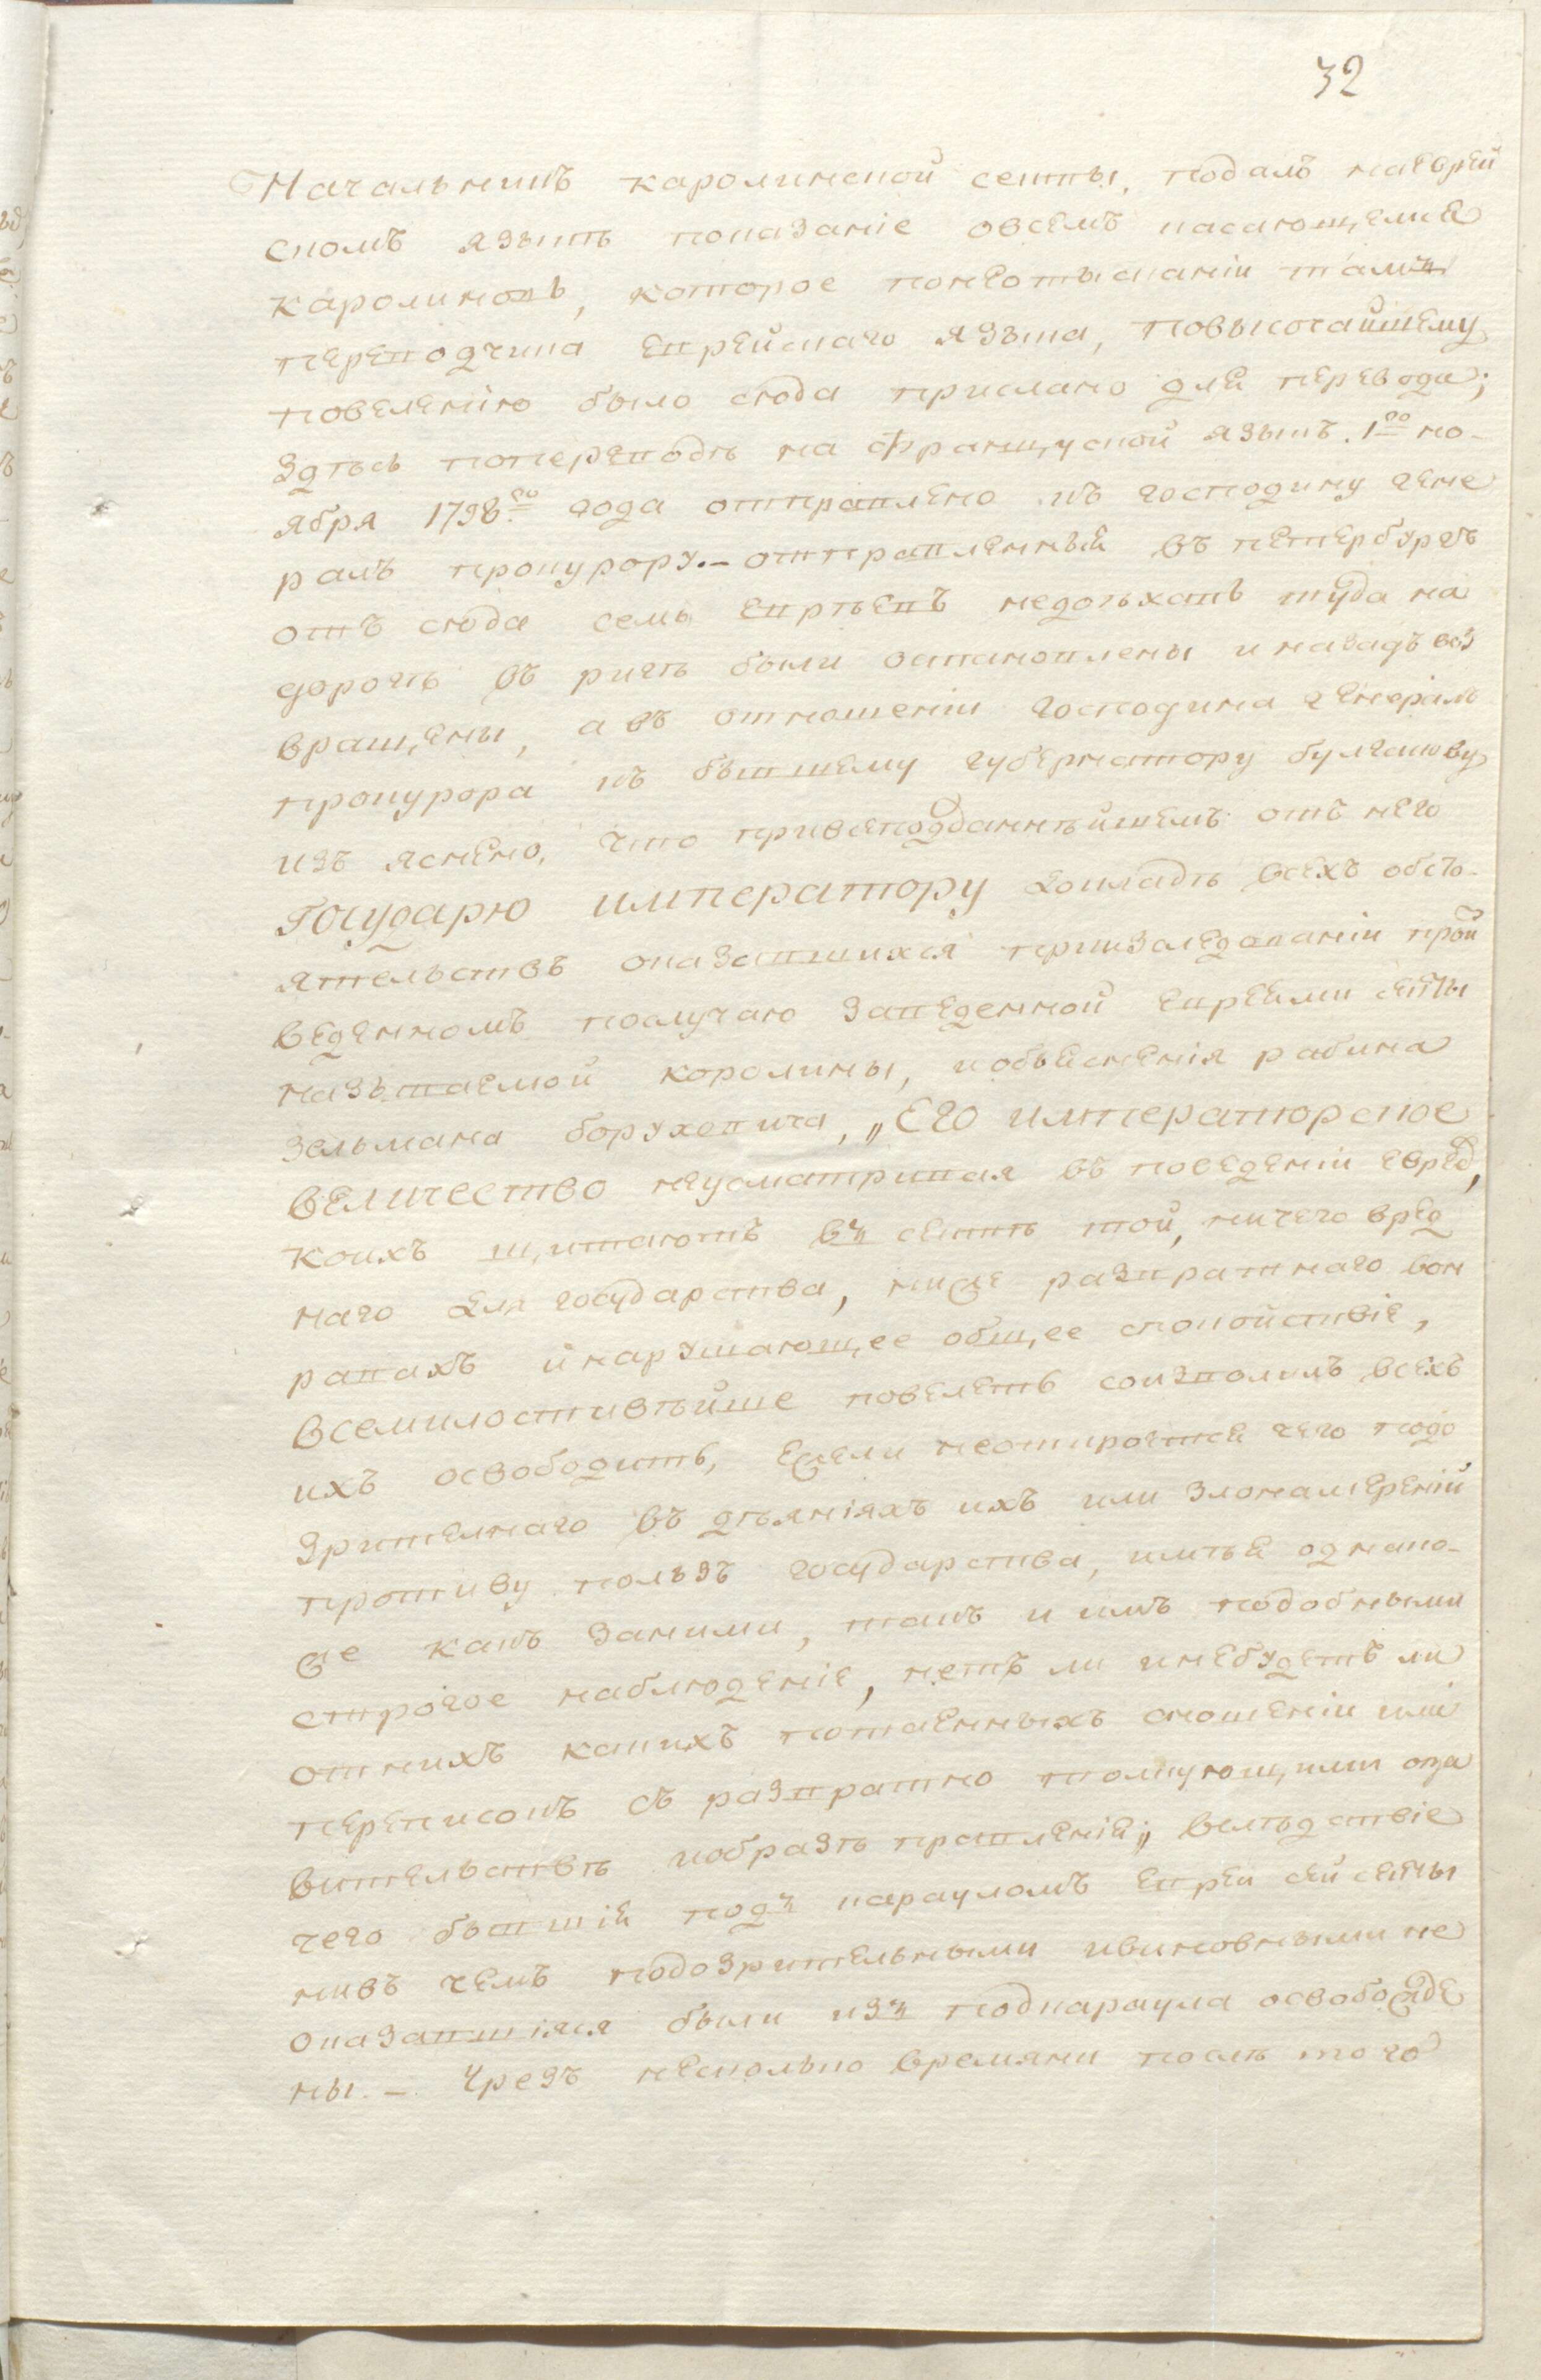 32
Начальникъ каролинской секты, подалъ наеврей
скомъ языкѣ показаніе овсемъ касающемся
каролиновъ, которое понеотысканіи тамъ
переводчика еврейскаго языка, повысочайшему
повелѣнію было сюда прислано для перевода;
здѣсь попереводѣ на французской языкъ. 1го но-
ября 1798го года отправлено къ господину гене
ралъ прокурору. – отправленныя въ петербургъ
отъ сюда семь евреевъ недоѣхавъ туда на
дорогѣ въ ригѣ были остановлены и назадъ воз
вращены, а въ отношеніи господина генералъ
прокурора къ бывшему губернатору булгакову
изъ яснено, что привсеподданнѣйшемъ отъ него
Государю императору докладѣ всехъ обсто-
ятельствъ оказавшихся приизследованіи прои
веденномъ послучаю заведенной евреями секты
называемой каролины, иобъясненія рабина
зельмана боруховича, „Его императорское
величество неусматривая въ поведеніи еврей,
коихъ щитаютъ въ сектѣ той, ничего вред
наго для государства, ниже развратнаго вон
равахъ инарушающее общее спокойствіе,
всемилостивѣйше повелеть соизволилъ всехъ
ихъ освободить, ежели неоткроется чего подо
зрителнаго въ дѣяніяхъ ихъ или зломамереній
противу пользъ государства, имѣя однако-
же какъ заними, такъ и имъ подобными
строгое наблюденіе, нетъ ли инебудетъ ли
отнихъ какихъ потаенныхъ сношеніи или
переписокъ съ развратно толкующими опра
вительствѣ иобразѣ правленія;„ вслѣдствіе
чего бывшія подъ карауломъ евреи сей секты
нивъ чемъ подозрительными ивиновными не
оказавшіяся были изъ подкараула освобожде
ны. – Чрезъ несколько времяни послѣ того